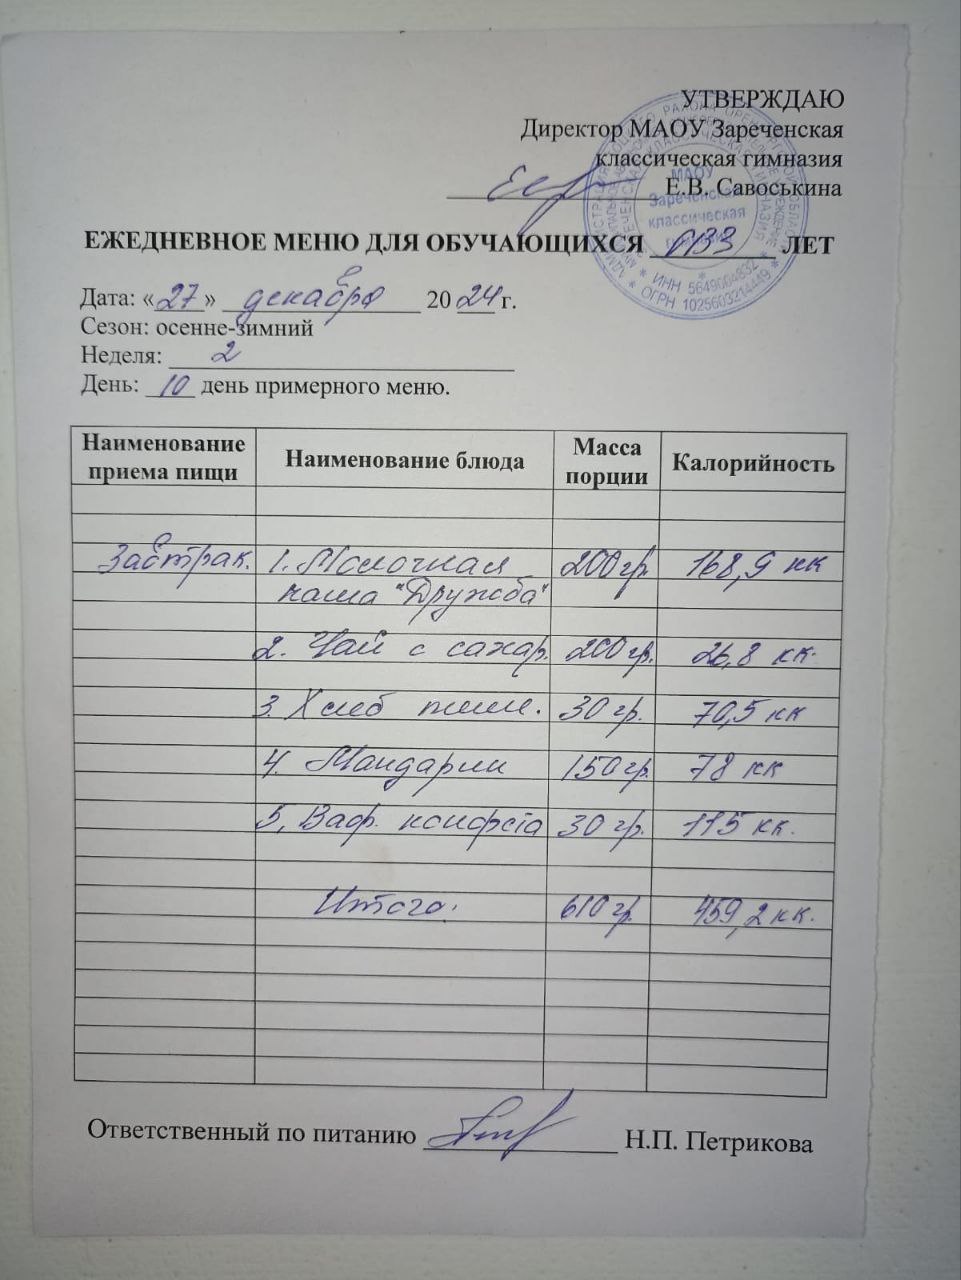 УТВЕРЖДАЮ
Директор МАОУ Зареченская
классическая гимназия
Е.В. Савоськина
МАОУ
Зареченская
классическая
гимназия
* ИНН 5649004832 *
* ОГРН 1025603214449 *
ЕЖЕДНЕВНОЕ МЕНЮ ДЛЯ ОБУЧАЮЩИХСЯ ОВЗ ЛЕТ
Дата: «27» декабря 2024 г.
Сезон: осенне-зимний
Неделя: 2
День: 10 день примерного меню.
Наименование приема пищи Наименование блюда Масса порции Калорийность
Завтрак. 1. Молочная 200 гр 168,9 кк
каша "Дружба"
2. Чай с сахар. 200 гр. 26,8 кк.
3. Хлеб пшен. 30 гр. 70,5 кк
4. Мандарин 150 гр. 78 кк
5. Ваф. конфета 30 гр. 115 кк.
Итого: 610 гр. 459,2 кк.
Ответственный по питанию Н.П. Петрикова